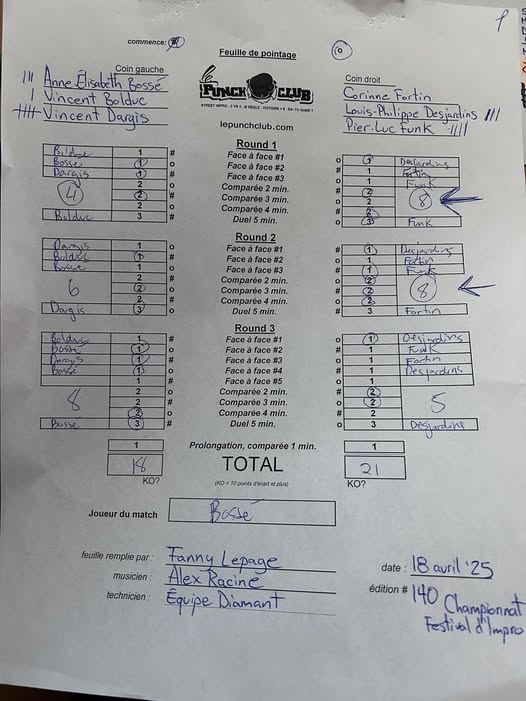 commence: #
Feuille de pointage
o
Coin gauche
||| Anne-Élisabeth Bossé
| Vincent Bolduc
Vincent Dargis
PUNCH CLUB
lepunchclub.com
Coin droit
Corinne Fortin
Louis-Philippe Desjardins |||
Pier-Luc Funk ||||
Round 1
Bolduc 1 # Face à face #1 o 1 Desjardins
Bossé 1 o Face à face #2 1 Fortin
Dargis 1 # Face à face #3 o 1 Funk
2 o Comparée 2 min. # 2
4 2 # Comparée 3 min. o 2 8
2 o Comparée 4 min. # 2
Bolduc 3 # Duel 5 min. o 3 Funk
Round 2
Dargis 1 o Face à face #1 # 1 Desjardins
Bolduc 1 # Face à face #2 o 1 Fortin
Bossé 1 o Face à face #3 # 1 Funk
2 # Comparée 2 min. o 2
6 2 o Comparée 3 min. # 2 8
2 # Comparée 4 min. o 2
Dargis 3 o Duel 5 min. # 3 Fortin
Round 3
Bolduc 1 # Face à face #1 o 1 Desjardins
Bossé 1 o Face à face #2 # 1 Funk
Dargis 1 # Face à face #3 o 1 Fortin
Bossé 1 o Face à face #4 # 1 Desjardins
1 # Face à face #5 o 1
2 o Comparée 2 min. # 2
8 2 # Comparée 3 min. o 2 5
2 o Comparée 4 min. # 2
Bossé 3 # Duel 5 min. o 3 Desjardins
1 Prolongation, comparée 1 min. 1
18 TOTAL 21
KO? (KO = 10 points d'écart et plus) KO?
Joueur du match Bossé
feuille remplie par : Fanny Lepage
musicien : Alex Racine
technicien : Équipe Diamant
date : 18 avril '25
édition # 140 Championnat
Festival d'Impro